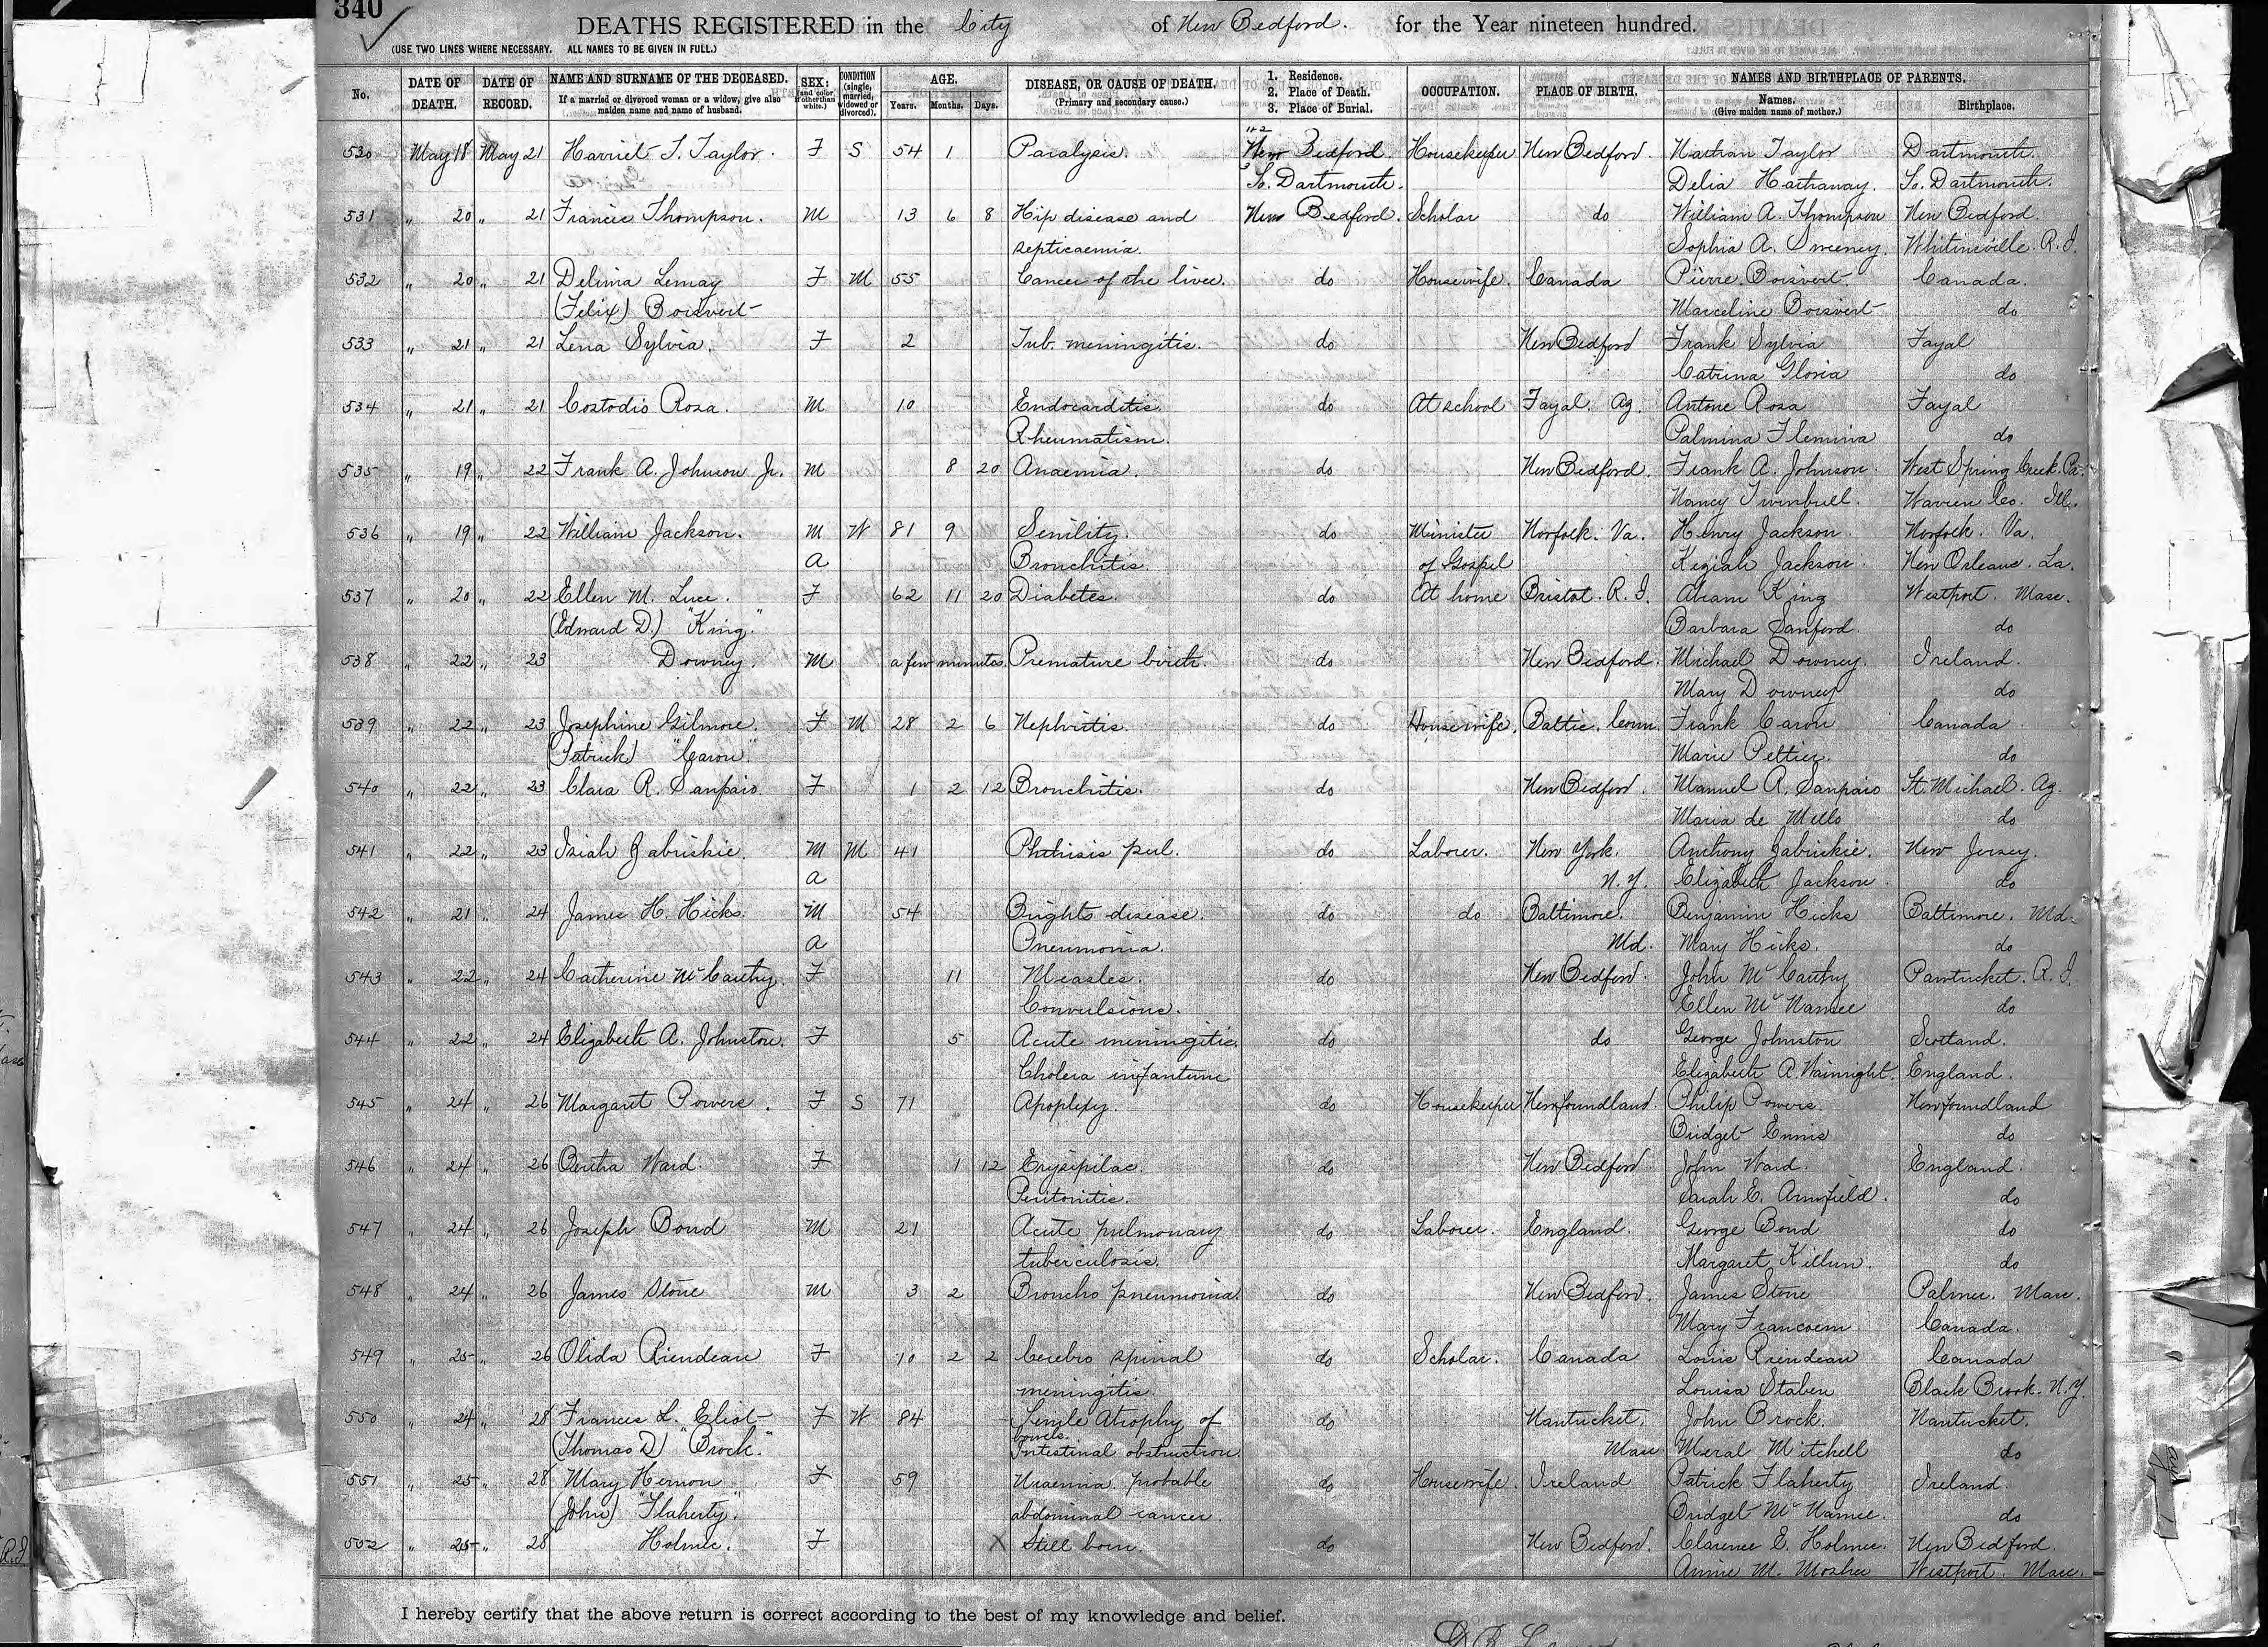 340
DEATHS REGISTERED in the City of New Bedford. for the Year nineteen hundred.
(USE TWO LINES WHERE NECESSARY. ALL NAMES TO BE GIVEN IN FULL.)
No. DATE OF DEATH. DATE OF RECORD. NAME AND SURNAME OF THE DECEASED. If a married or divorced woman or a widow, give also maiden name and name of husband. SEX; (and color if other than white.) CONDITION (single, married, widowed or divorced). AGE. Years. Months. Days. DISEASE, OR CAUSE OF DEATH. (Primary and secondary cause.) 1. Residence. 2. Place of Death. 3. Place of Burial. OCCUPATION. PLACE OF BIRTH. NAMES AND BIRTHPLACE OF PARENTS. Names. (Give maiden name of mother.) Birthplace.
530 May 18 May 21 Harriet T. Taylor. F S 54 1 Paralysis. 1+2 New Bedford. Housekeeper New Bedford. Nathan Taylor Dartmouth.
3 So. Dartmouth. Delia Hathaway. So. Dartmouth.
531 " 20 " 21 Francis Thompson. M 13 6 8 Hip disease and New Bedford. Scholar do William A. Thompson New Bedford.
septicaemia. Sophia A. Sweeney. Whitinsville. R.I.
532 " 20 " 21 Delima Lemay F M 55 Cancer of the liver. do Housewife. Canada Pierre Boisvert. Canada.
(Felix) Boisvert Marceline Boisvert do
533 " 21 " 21 Lena Sylvia. F 2 Tub. meningitis. do New Bedford Frank Sylvia Fayal
Catrina Gloria do
534 " 21 " 21 Costodio Rosa. M 10 Endocarditis. do At school Fayal. Az. Antone Rosa Fayal
Rheumatism. Palmina Flemina do
535 " 19 " 22 Frank A. Johnson Jr. M 8 20 Anaemia. do New Bedford. Frank A. Johnson. West Spring Creek. Pa.
Nancy Twinbull. Warren Co. Ill.
536 " 19 " 22 William Jackson. M W 81 9 Senility. do Minister Norfolk. Va. Henry Jackson. Norfolk. Va.
A Bronchitis. of Gospel Keziah Jackson. New Orleans. La.
537 " 20 " 22 Ellen M. Luce. F 62 11 20 Diabetes. do At home Bristol. R.I. Abram King Westport. Mass.
(Edward D.) "King." Barbara Sanford do
538 " 22 " 23 Downey. M a few minutes. Premature birth. do New Bedford. Michael Downey. Ireland.
Mary Downey do
539 " 22 " 23 Josephine Gilmore. F M 28 2 6 Nephritis. do Housewife. Baltic. Conn. Frank Caron Canada
(Patrick) "Caron." Marie Peltier. do
540 " 22 " 23 Clara R. Sanpaio. F 1 2 12 Bronchitis. do New Bedford. Manuel R. Sanpaio St. Michael. Az.
Maria de Mello do
541 " 22 " 23 Isiah Zabriskie. M M 41 Phthisis pul. do Laborer. New York. Anthony Zabriskie. New Jersey.
A N.Y. Elizabeth Jackson. do
542 " 21 " 24 James H. Hicks. M 54 Brights disease. do do Baltimore. Benjamin Hicks Baltimore. Md.
A Pneumonia. Md. Mary Hicks. do
543 " 22 " 24 Catherine McCarthy. F 11 Measles. do New Bedford. John McCarthy Pawtucket. R.I.
Convulsions. Ellen McNamee do
544 " 22 " 24 Elizabeth A. Johnston. F 5 Acute meningitis. do do George Johnston Scotland.
Cholera infantum Elizabeth A. Wainright. England.
545 " 24 " 26 Margaret Powers. F S 71 Apoplexy. do Housekeeper Newfoundland. Philip Powers. Newfoundland
Bridget Ennis do
546 " 24 " 26 Bertha Ward. F 1 12 Erysipilas. do New Bedford. John Ward. England.
Peritonitis. Sarah E. Armfield. do
547 " 24 " 26 Joseph Bond M 21 Acute pulmonary do Laborer. England. George Bond do
tuberculosis. Margaret Killun. do
548 " 24 " 26 James Stone M 3 2 Broncho pneumonia. do New Bedford. James Stone Palmer. Mass.
Mary Francoem Canada.
549 " 25 " 26 Olida Riendeau F 10 2 2 Cerebro spinal do Scholar. Canada Louis Riendeau Canada
meningitis. Louisa Staben Black Brook. N.Y.
550 " 24 " 28 Frances L. Eliot F W 84 Senile Atrophy of do Nantucket. John Brock. Nantucket.
bowels.
(Thomas D) "Brock." Intestinal obstruction. Mass Meral Mitchell do
551 " 25 " 28 Mary Hernon F 59 Uraemia. probable do Housewife. Ireland Patrick Flaherty Ireland.
(John) "Flaherty." abdominal cancer. Bridget McNamee. do
552 " 25 " 28 Holmes. F X Still born. do New Bedford. Clarence E. Holmes. New Bedford.
Annie M. Mosher Westport. Mass.
I hereby certify that the above return is correct according to the best of my knowledge and belief.